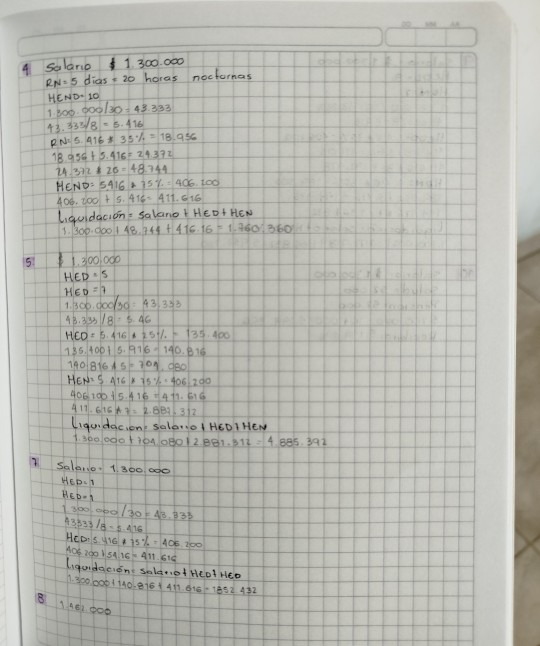 4 Salario $ 1.300.000
RN= 5 dias = 20 horas nocturnas
HEND=10
1.300.000/30= 43.333
43.333/8= 5.416
RN= 5.416 * 35% = 18.956
18.956 + 5.416= 24.372
24.372 * 20 = 48.744
HEND= 5416 * 75% = 406.200
406.200 + 5.416= 411.616
Liquidación= Salario + HED + HEN
1.300.000 + 48.744 + 416.16 = 1.760.360
5 $ 1.300.000
HED = 5
HED = 7
1.300.000/30= 43.333
43.333/8= 5.46
HED= 5.416 * 25% = 135.400
135.400 + 5.416= 140.816
140.816 * 5= 704.080
HEN= 5.416 * 75% = 406.200
406.200 + 5.416 = 411.616
411.616 * 7= 2.881.312
Liquidacion= Salario + HED + HEN
1.300.000 + 704.080 + 2.881.312 = 4.885.392
7 Salario= 1.300.000
HED=1
HED=1
1.300.000/30= 43.333
43333/8= 5.416
HED= 5.416 * 75% = 406.200
406.200 + 5416= 411.616
Liquidación= Salario + HED + HED
1.300.000 + 140.816 + 411.616 = 1852.432
8 1.461.000